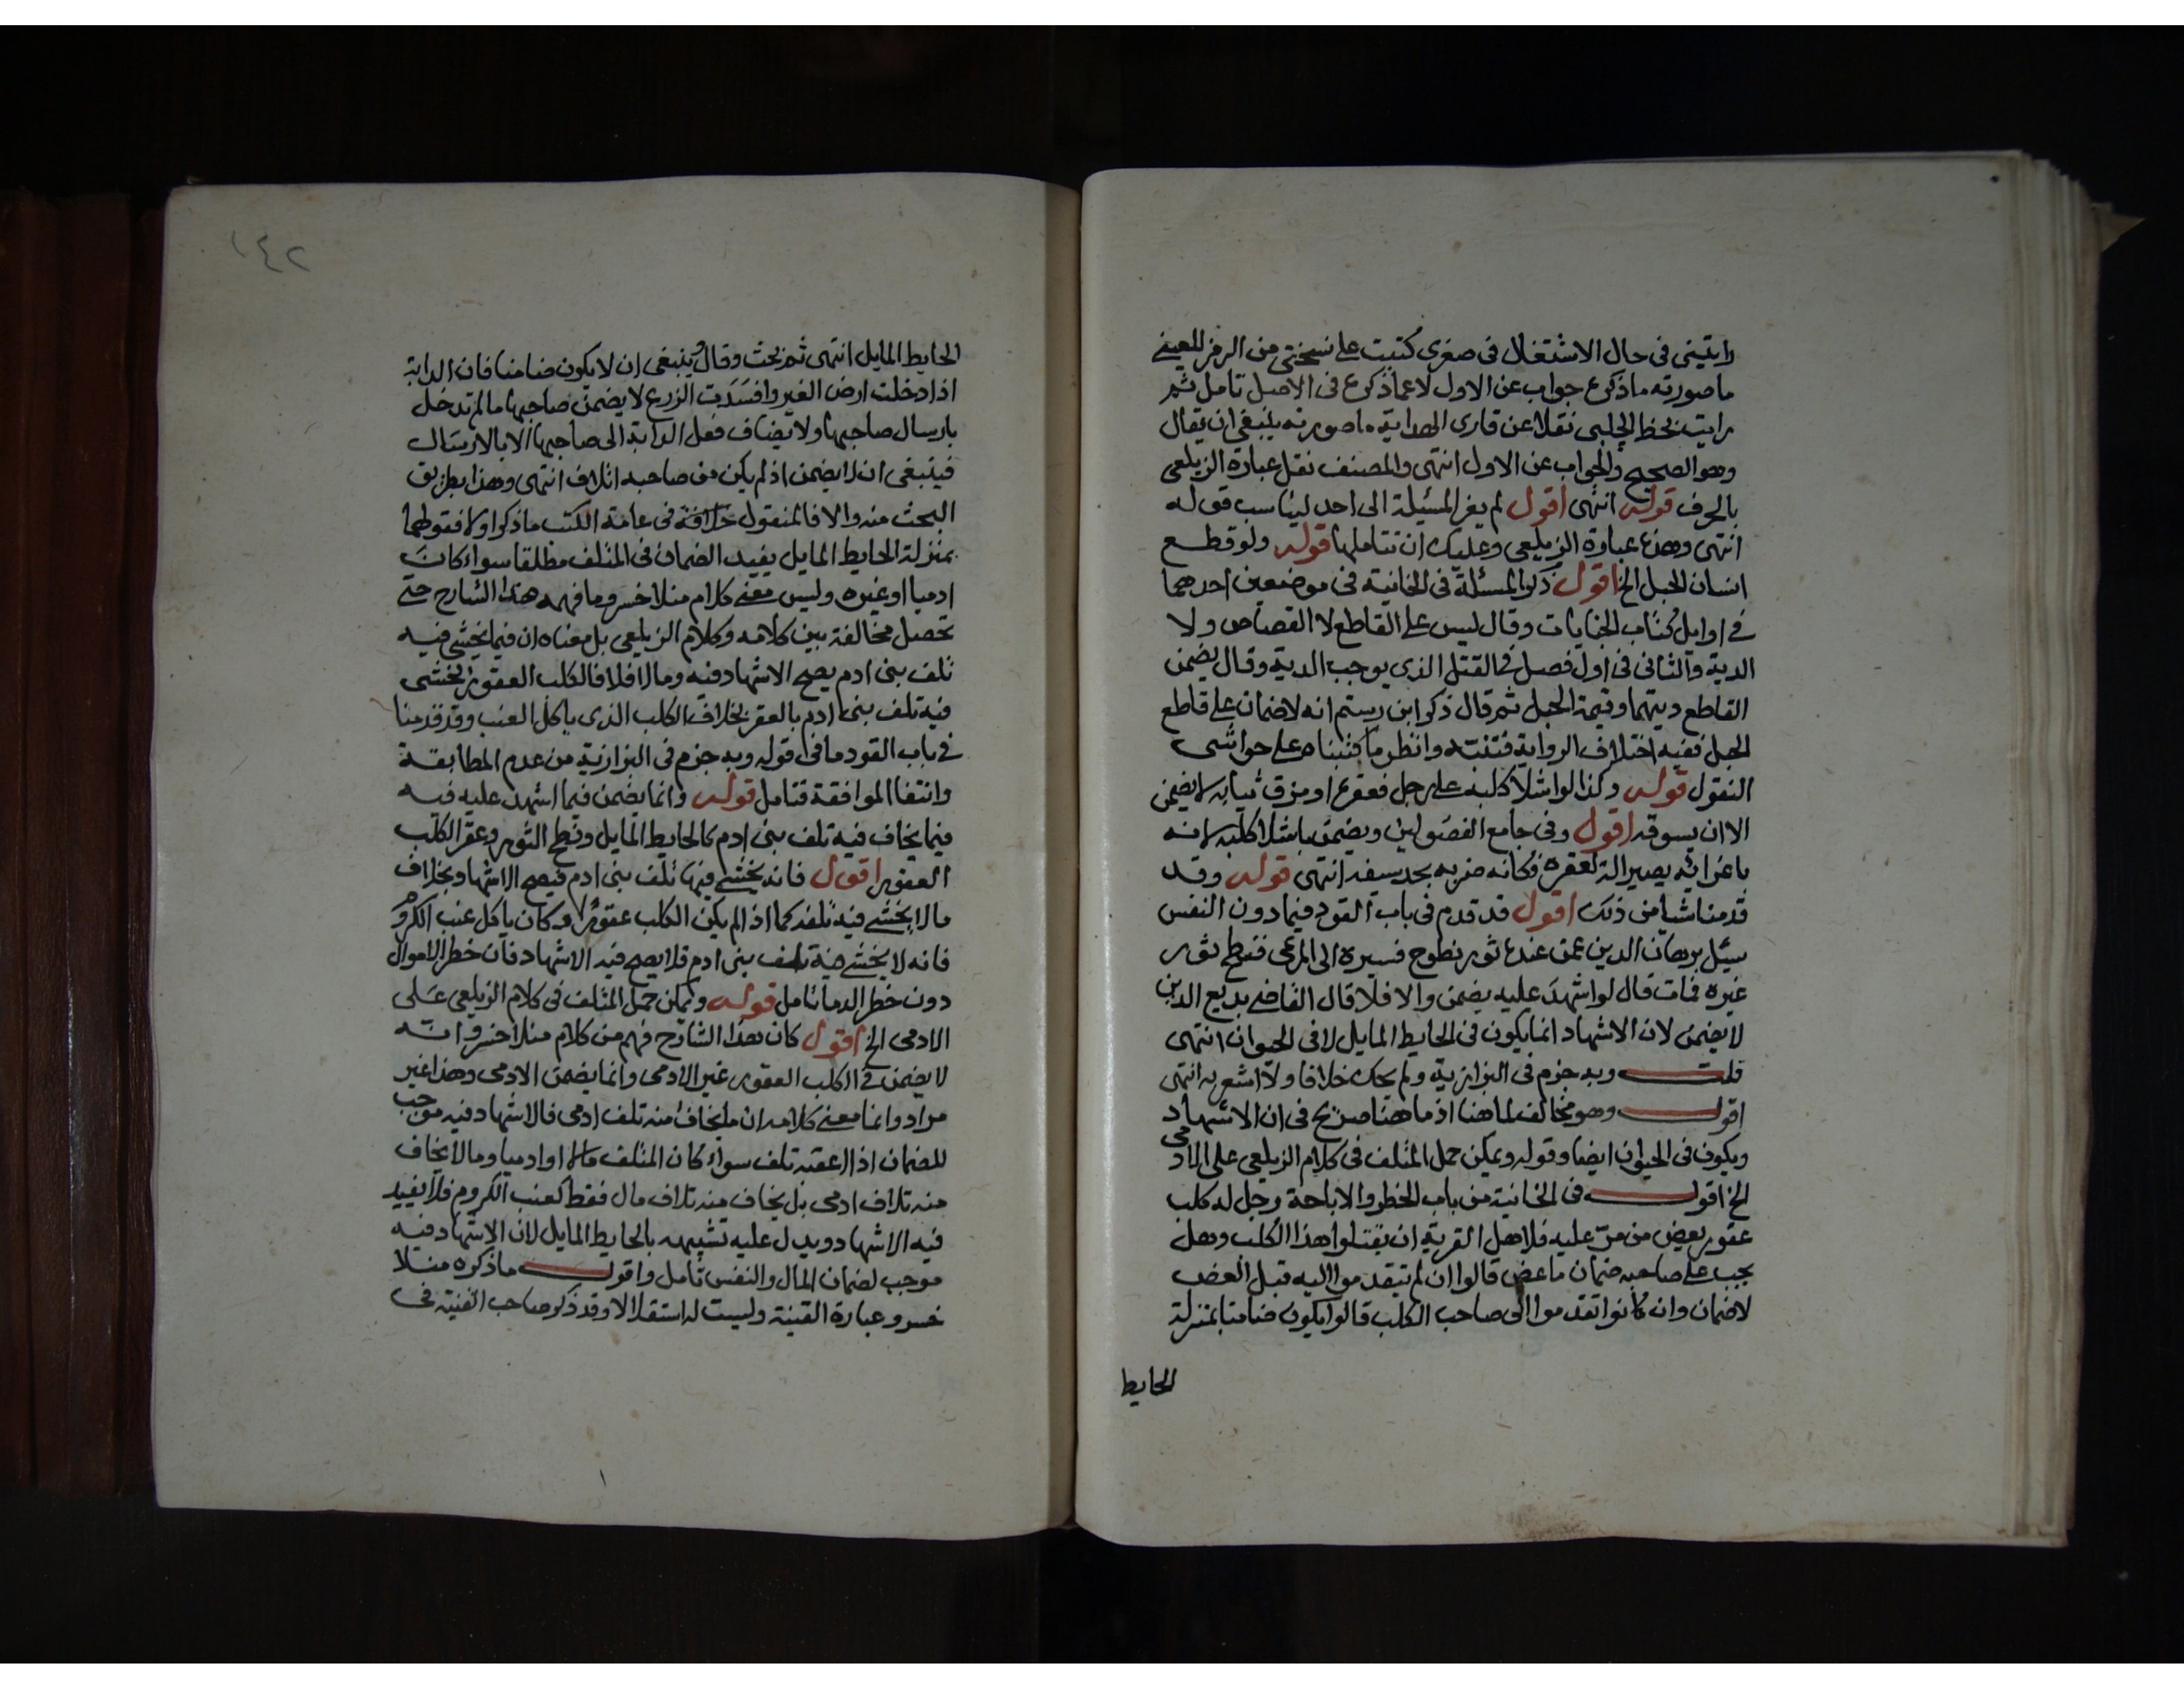 رايتني في حال الاشتغال في صغرى كتبت على نسختي من الرمز للعيني
ما صورته ما ذكره جواب عن الاول لا عما ذكره في الاصل تامل ثم
رايت بخط الچلبي نقلا عن قارى الهداية ما صورته ينبغي ان يقال
وهو الصحيح والجواب عن الاول انتهى والمصنف نقل عبارة الزيلعي
بالحرف قوله انتهى اقول لم يعز المسئلة الى احد ليناسب قوله
انتهى وهذه عبارة الزيلعي وعليك ان تتاملها قوله ولو قطع
انسان الحبل الخ اقول ذكر المسئلة في الخانية في موضعين احدهما
في اوايل كتاب الجنايات وقال ليس على القاطع لا القصاص ولا
الدية والثاني في اول فصل في القتل الذي يوجب الدية وقال يضمن
القاطع ديتهما وقيمة الحبل ثم قال ذكر ابن رستم انه لا ضمان على قاطع
الحبل ففيه اختلاف الرواية فتنته وانظر ما كتبناه على حواشي
النقول قوله وكذا لو اشلا كلبه على رجل فعقره او مزق ثيابه لا يضمن
الا ان يسوقه اقول وفي جامع الفصولين ويضمن باشلا كلبه لانه
باغرائه يصير الة لعقره فكانه ضربه بحد سيفه انتهى قوله وقد
قدمنا شيا من ذلك اقول قد قدم في باب القود فيما دون النفس
سئل برهان الدين عمن عنده ثور نطوح فسيره الى المرعى فنطح ثور
غيره فمات قال لو اشهد عليه يضمن والا فلا قال القاضي بديع الدين
لا يضمن لان الاشهاد انما يكون في الحايط المايل لا في الحيوان انتهى
قلت وبه جزم في البزازية ولم يحك خلافا ولا اشعر به انتهى
اقول وهو مخالف لما هنا اذ ما هنا صريح في ان الاشهاد
ويكون في الحيوان ايضا وقوله ويمكن حمل المتلف في كلام الزيلعي على الادمي
الخ اقول في الخانية من باب الحظر والاباحة رجل له كلب
عقور يعض من مر عليه فلاهل القرية ان يقتلوا هذا الكلب وهل
يجب على صاحبه ضمان ما عض قالوا ان لم يتقدموا اليه قبل العض
لا ضمان وان كانوا تقدموا الى صاحب الكلب قالوا يكون ضامنا بمنزلة
الحايط
١٤٢
الحايط المايل انتهى ثم بحث وقال وينبغي ان لا يكون ضامنا فان الدابة
اذا دخلت ارض الغير وافسدت الزرع لا يضمن صاحبها ما لم تدخل
بارسال صاحبها ولا يضاف فعل الدابة الى صاحبها الا بالارسال
فينبغي ان لا يضمن اذ لم يكن من صاحبه اتلاف انتهى وهذا بطريق
البحث منه والا فالمنقول خلافه في عامة الكتب ما ذكر اولا فقولهما
بمنزلة الحايط المايل يفيد الضمان في المتلف مطلقا سواء كان
ادميا او غيره وليس معنى كلام منلا خسرو ما فهمه هذا الشارح حتى
تحصل مخالفة بين كلامه وكلام الزيلعي بل معناه ان فيما يخشى فيه
تلف بني ادم يصح الاشهاد فيه وما لا فلا فالكلب العقور يخشى
فيه تلف بني ادم بالعقر بخلاف الكلب الذي ياكل العنب وقد قدمنا
في باب القود ما في قوله وبه جزم في البزازية من عدم المطابقة
وانتفا الموافقة فتامل قوله وانما يضمن فيما اشهد عليه فيه
فيما يخاف فيه تلف بني ادم كالحايط المايل ونطح الثور وعقر الكلب
العقور اقول فانه يخشى فيها تلف بني ادم فيصح الاشهاد بخلاف
ما لا يخشى فيه تلفه كما اذا لم يكن الكلب عقورا وكان ياكل عنب الكروم
فانه لا يخشى فيه تلف بني ادم فلا يصح فيه الاشهاد فان خطر الاموال
دون خطر الدما تامل قوله ويمكن حمل المتلف في كلام الزيلعي على
الادمي الخ اقول كان هذا الشارح فهم من كلام منلا خسرو انه
لا يضمن في الكلب العقور غير الادمي وانما يضمن الادمي وهذا غير
مراد وانما معنى كلامه ان ما يخاف منه تلف ادمي فالاشهاد فيه موجب
للضمان اذا اعقبه تلف سواء كان المتلف مالا او ادميا وما لا يخاف
منه تلاف ادمي بل يخاف منه تلاف مال فقط كعنب الكروم فلا يفيد
فيه الاشهاد ويدل عليه تشبيهه بالحايط المايل لان الاشهاد فيه
موجب لضمان المال والنفس تامل واقول ما ذكره منلا
خسرو عبارة القنية وليست له استقلالا وقد ذكر صاحب القنية في